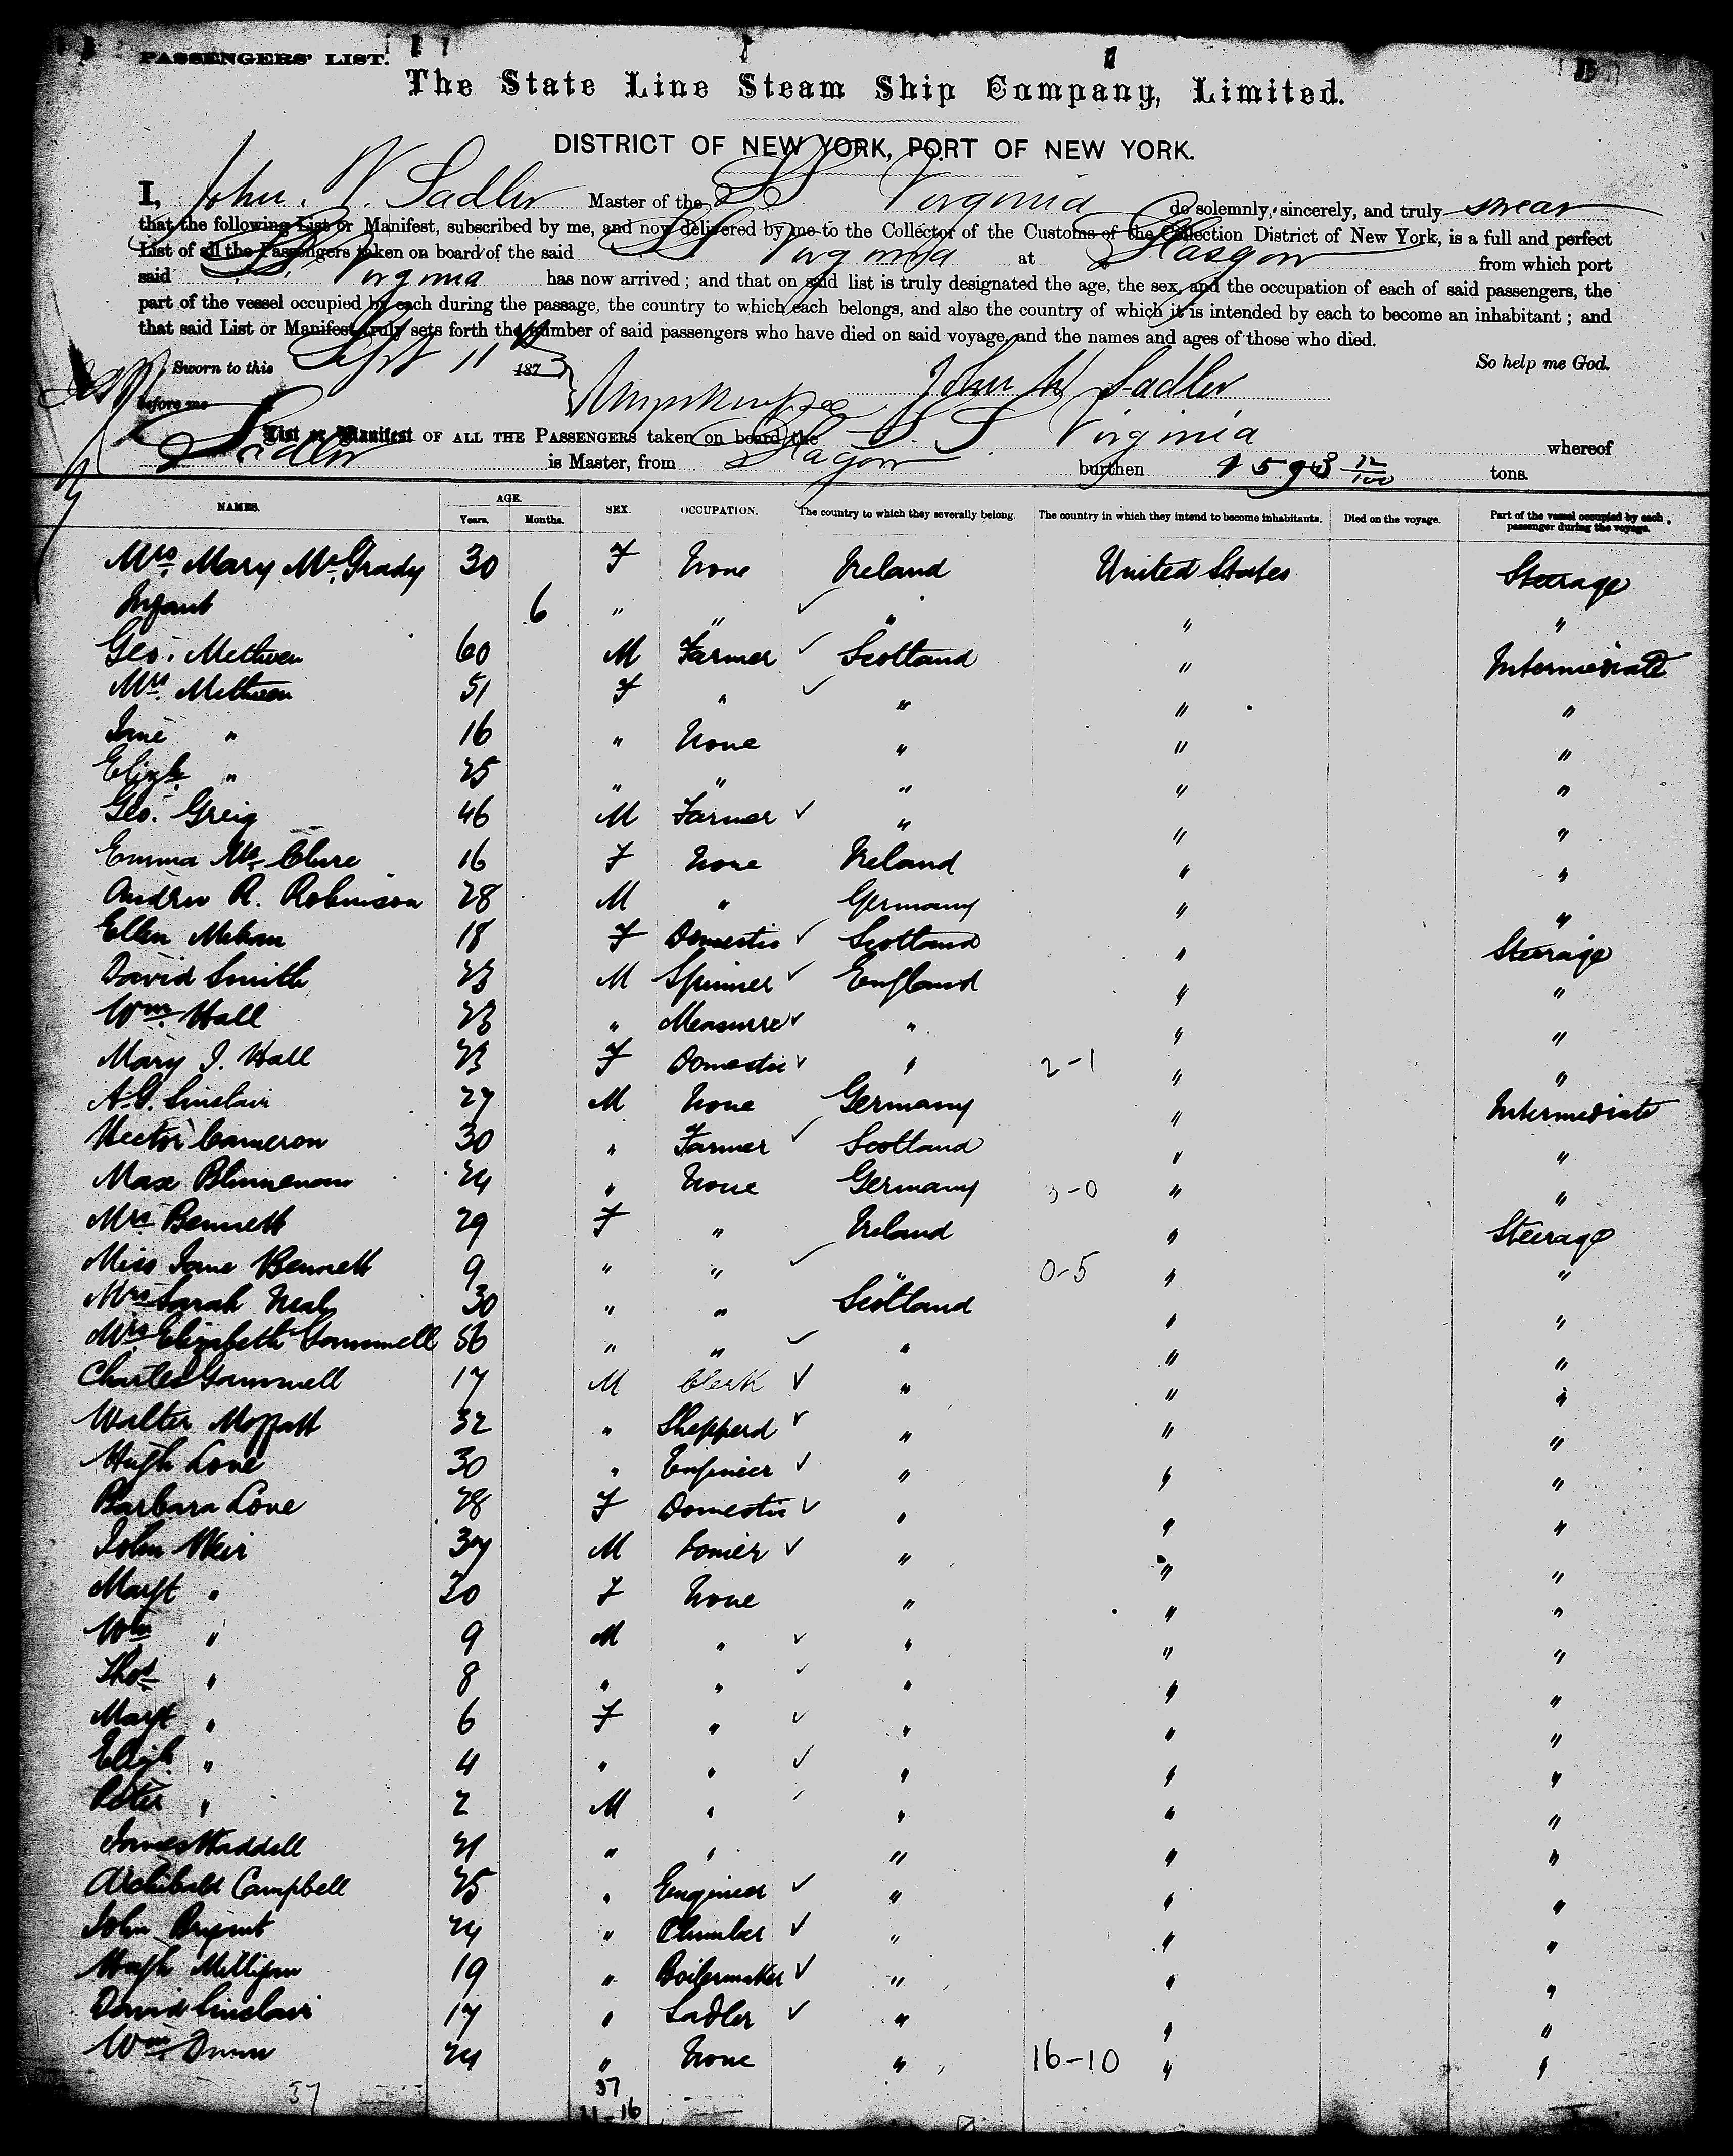 PASSENGERS' LIST.
The State Line Steam Ship Company, Limited.
DISTRICT OF NEW YORK, PORT OF NEW YORK.
I, John. W. Sadler Master of the SS Virginia do solemnly, sincerely, and truly swear
that the following List or Manifest, subscribed by me, and now delivered by me to the Collector of the Customs of the Collection District of New York, is a full and perfect
List of all the Passengers taken on board of the said S.S. Virginia at Glasgow from which port
said S.S. Virginia has now arrived; and that on said list is truly designated the age, the sex, and the occupation of each of said passengers, the
part of the vessel occupied by each during the passage, the country to which each belongs, and also the country of which it is intended by each to become an inhabitant; and
that said List or Manifest truly sets forth the number of said passengers who have died on said voyage, and the names and ages of those who died.
Sworn to this Sept 11 1873 So help me God.
before me John W Sadler
List or Manifest OF ALL THE PASSENGERS taken on board the S. S. Virginia whereof
Sadler is Master, from Glasgow burthen tons.
NAMES. AGE. Years. Months. SEX. OCCUPATION. The country to which they severally belong. The country in which they intend to become inhabitants. Died on the voyage. Part of the vessel occupied by each passenger during the voyage.
Mrs. Mary McGrady 30 F None Ireland United States Steerage
Infant 6 " " " " "
Geo. Methven 60 M Farmer Scotland " Intermediate
Mrs. Methven 51 F " " " "
Jane " 16 " None " " "
Elizh. " 25 " " " " "
Geo. Greig 46 M Farmer " " "
Emma McClure 16 F None Ireland " "
Andrew R. Robinson 28 M " Germany " "
Ellen Mehan 18 F Domestic Scotland " Steerage
David Smith 23 M Spinner England " "
Wm. Hall 23 " Measurer " " "
Mary J. Hall 23 F Domestic " 2-1 " "
A.G. Sinclair 27 M None Germany " Intermediate
Hector Cameron 30 " Farmer Scotland " "
Max 24 " None Germany 3-0 " "
Mrs Bennett 29 F " Ireland " Steerage
Miss Jane Bennett 9 " " " 0-5 " "
Mrs Sarah Nealy 30 " " Scotland " "
Mrs Elizabeth Gammell 56 " " " " "
Charles Gammell 17 M Clerk " " "
Walter Moffatt 32 " Shepperd " " "
Hugh Love 30 " Engineer " " "
Barbara Love 28 F Domestic " " "
John Weir 37 M Joiner " " "
Margt " 30 F None " " "
Wm " 9 M " " " "
Thos " 8 " " " " "
Margt " 6 F " " " "
Elizh. " 4 " " " " "
Peter " 2 M " " " "
James Waddell 21 " " " " "
Archibald Campbell 25 " Engineer " " "
John Bryant 24 " Plumber " " "
Hugh Milligan 19 " Boilermaker " " "
David Sinclair 17 " Sadler " " "
Wm. Dunn 24 " None " 16-10 " "
37 37
21-16